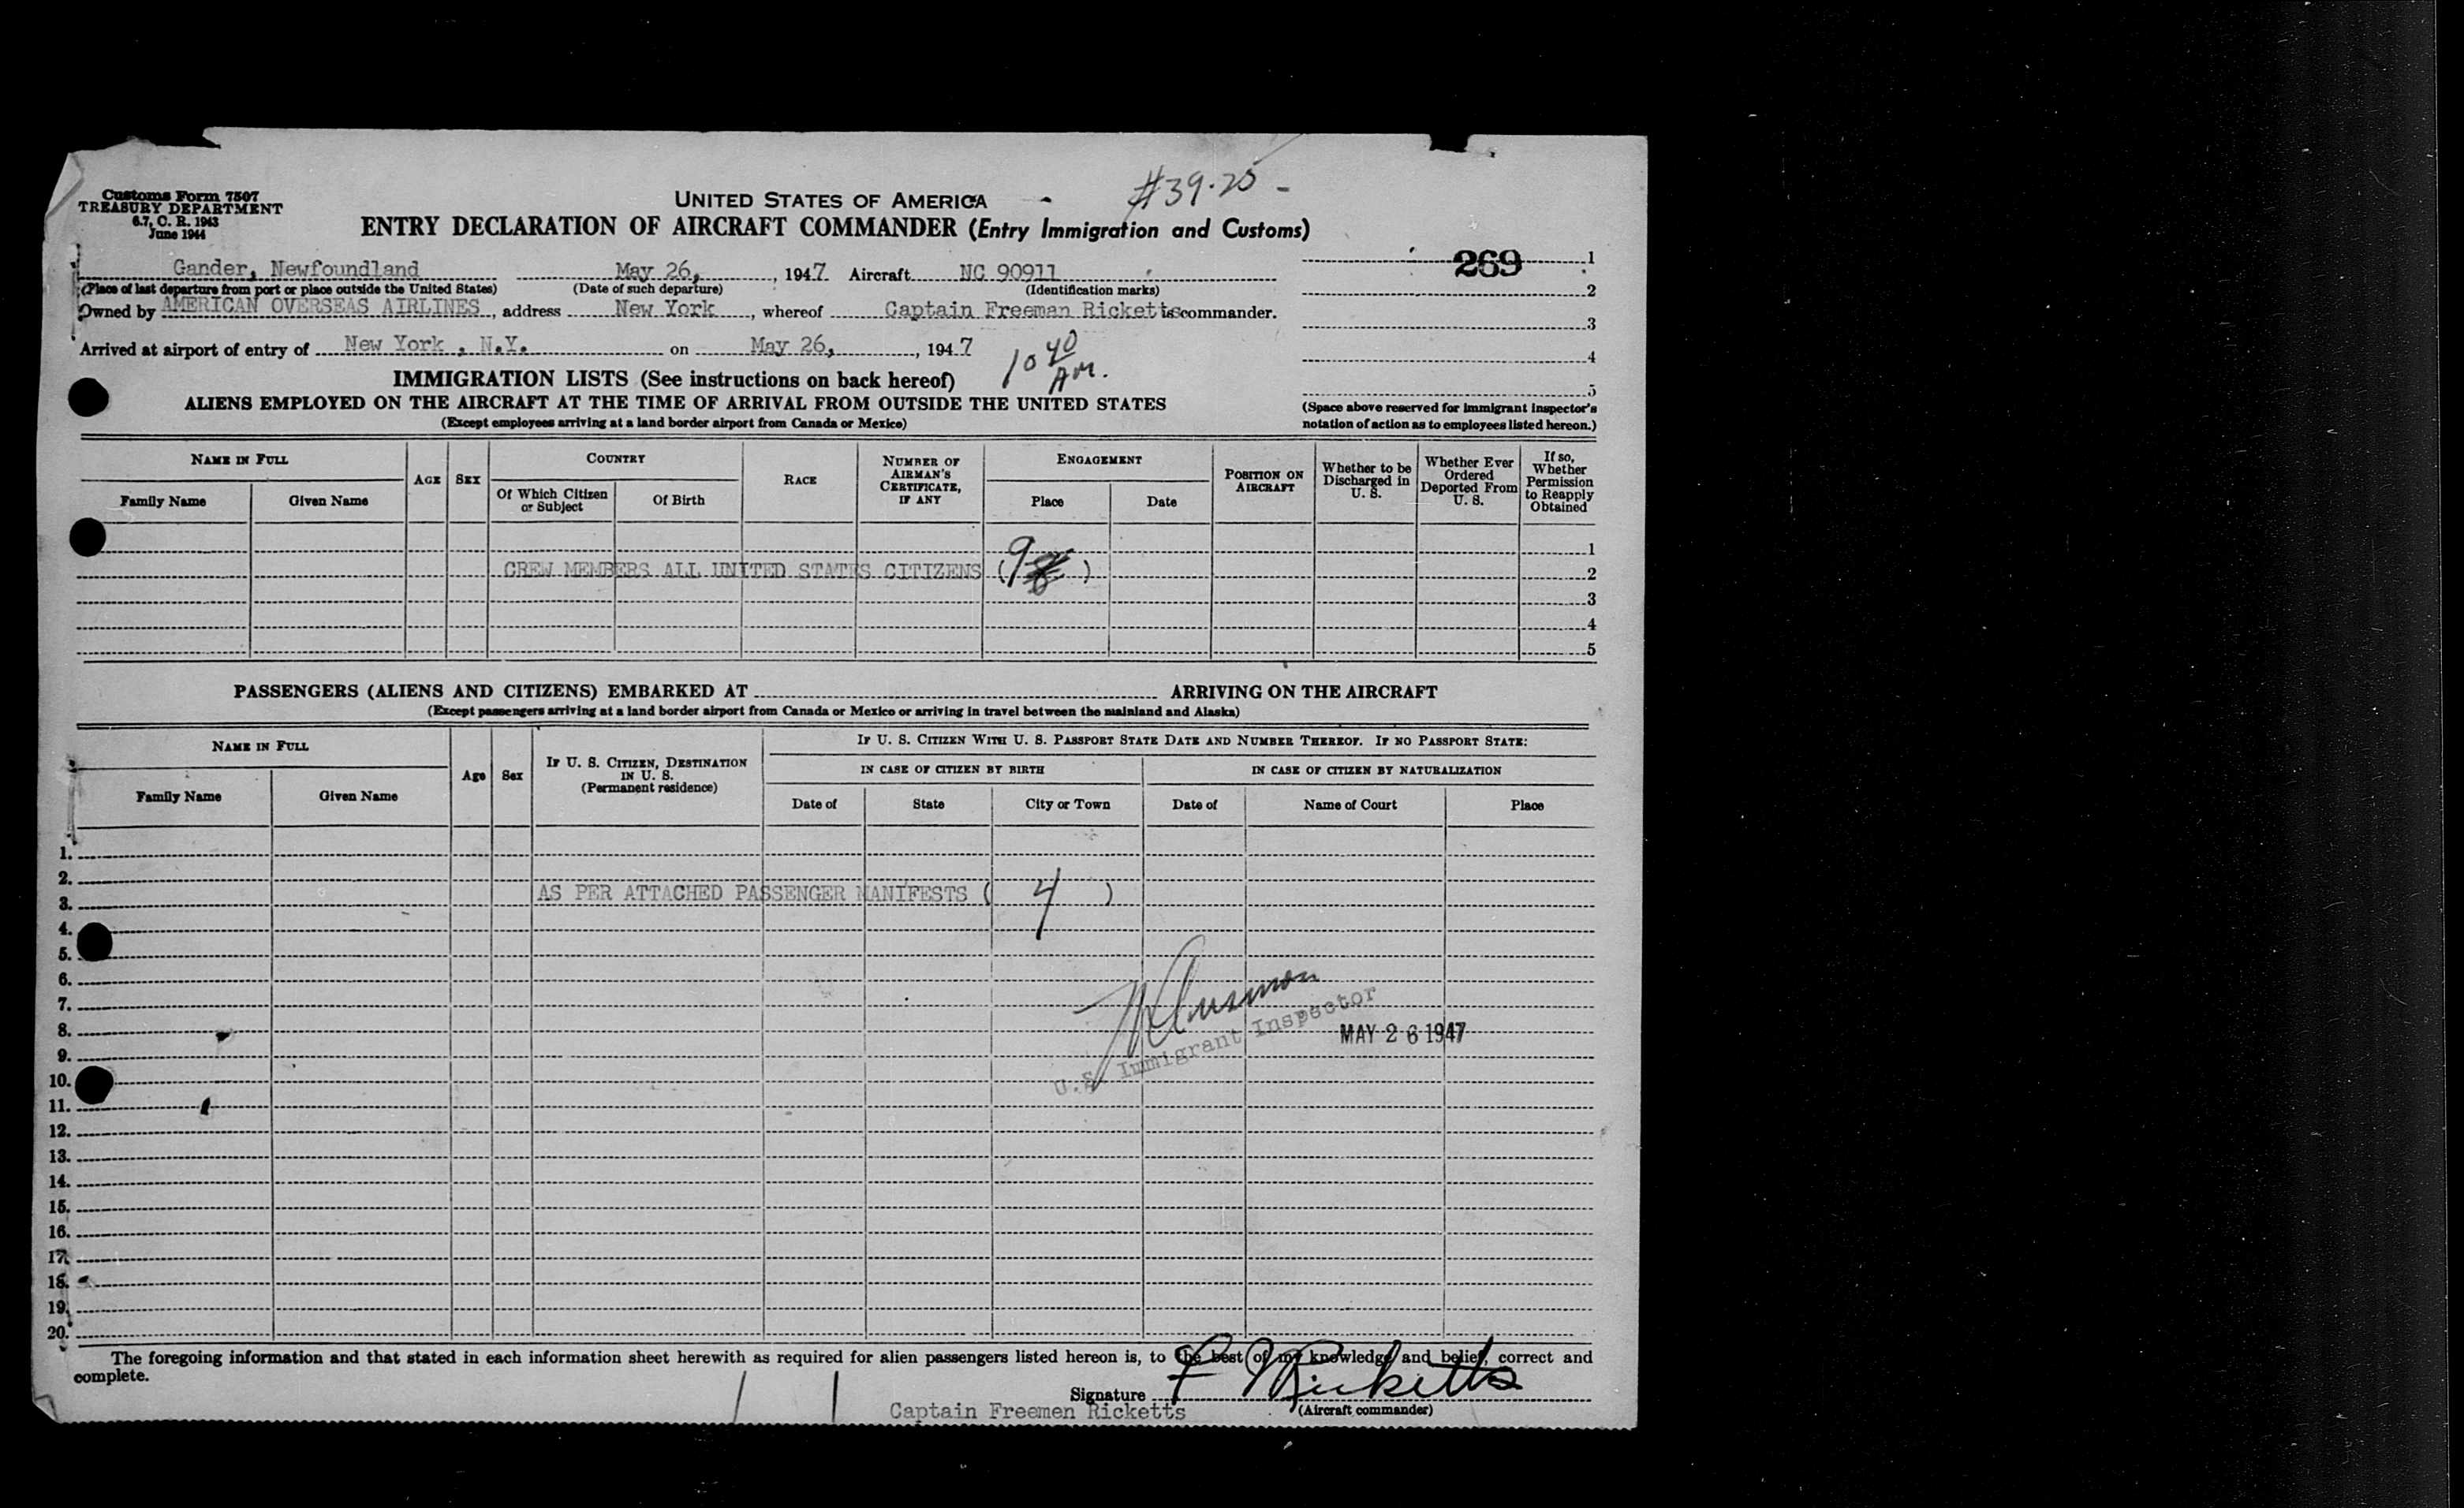 Customs Form 7507
TREASURY DEPARTMENT
6.7, C. R. 1943
June 1944
UNITED STATES OF AMERICA
#39.25 -
ENTRY DECLARATION OF AIRCRAFT COMMANDER (Entry Immigration and Customs)
Gander, Newfoundland May 26, , 1947 Aircraft NC 90911
(Place of last departure from port or place outside the United States) (Date of such departure) (Identification marks)
Owned by AMERICAN OVERSEAS AIRLINES , address New York , whereof Captain Freeman Ricketts is commander.
Arrived at airport of entry of New York , N.Y. on May 26, , 1947
10 40 AM.
269 1
2
3
4
5
(Space above reserved for immigrant inspector's
notation of action as to employees listed hereon.)
IMMIGRATION LISTS (See instructions on back hereof)
ALIENS EMPLOYED ON THE AIRCRAFT AT THE TIME OF ARRIVAL FROM OUTSIDE THE UNITED STATES
(Except employees arriving at a land border airport from Canada or Mexico)
NAME IN FULL
Family Name
Given Name
AGE
SEX
COUNTRY
Of Which Citizen
or Subject
Of Birth
RACE
NUMBER OF
AIRMAN'S
CERTIFICATE,
IF ANY
ENGAGEMENT
Place
Date
POSITION ON
AIRCRAFT
Whether to be
Discharged in
U. S.
Whether Ever
Ordered
Deported From
U. S.
If so,
Whether
Permission
to Reapply
Obtained
1
CREW MEMBERS ALL UNITED STATES CITIZENS (9 ) 2
3
4
5
PASSENGERS (ALIENS AND CITIZENS) EMBARKED AT ARRIVING ON THE AIRCRAFT
(Except passengers arriving at a land border airport from Canada or Mexico or arriving in travel between the mainland and Alaska)
NAME IN FULL
Family Name
Given Name
Age
Sex
IF U. S. CITIZEN, DESTINATION
IN U. S.
(Permanent residence)
IF U. S. CITIZEN WITH U. S. PASSPORT STATE DATE AND NUMBER THEREOF. IF NO PASSPORT STATE:
IN CASE OF CITIZEN BY BIRTH
IN CASE OF CITIZEN BY NATURALIZATION
Date of
State
City or Town
Date of
Name of Court
Place
1.
2.
AS PER ATTACHED PASSENGER MANIFESTS ( 4 )
3.
4.
5.
6.
7.
U.S. Immigrant Inspector
8.
MAY 26 1947
9.
10.
11.
12.
13.
14.
15.
16.
17.
18.
19.
20.
The foregoing information and that stated in each information sheet herewith as required for alien passengers listed hereon is, to the best of my knowledge and belief, correct and
complete.
Signature F Ricketts
Captain Freemen Ricketts (Aircraft commander)